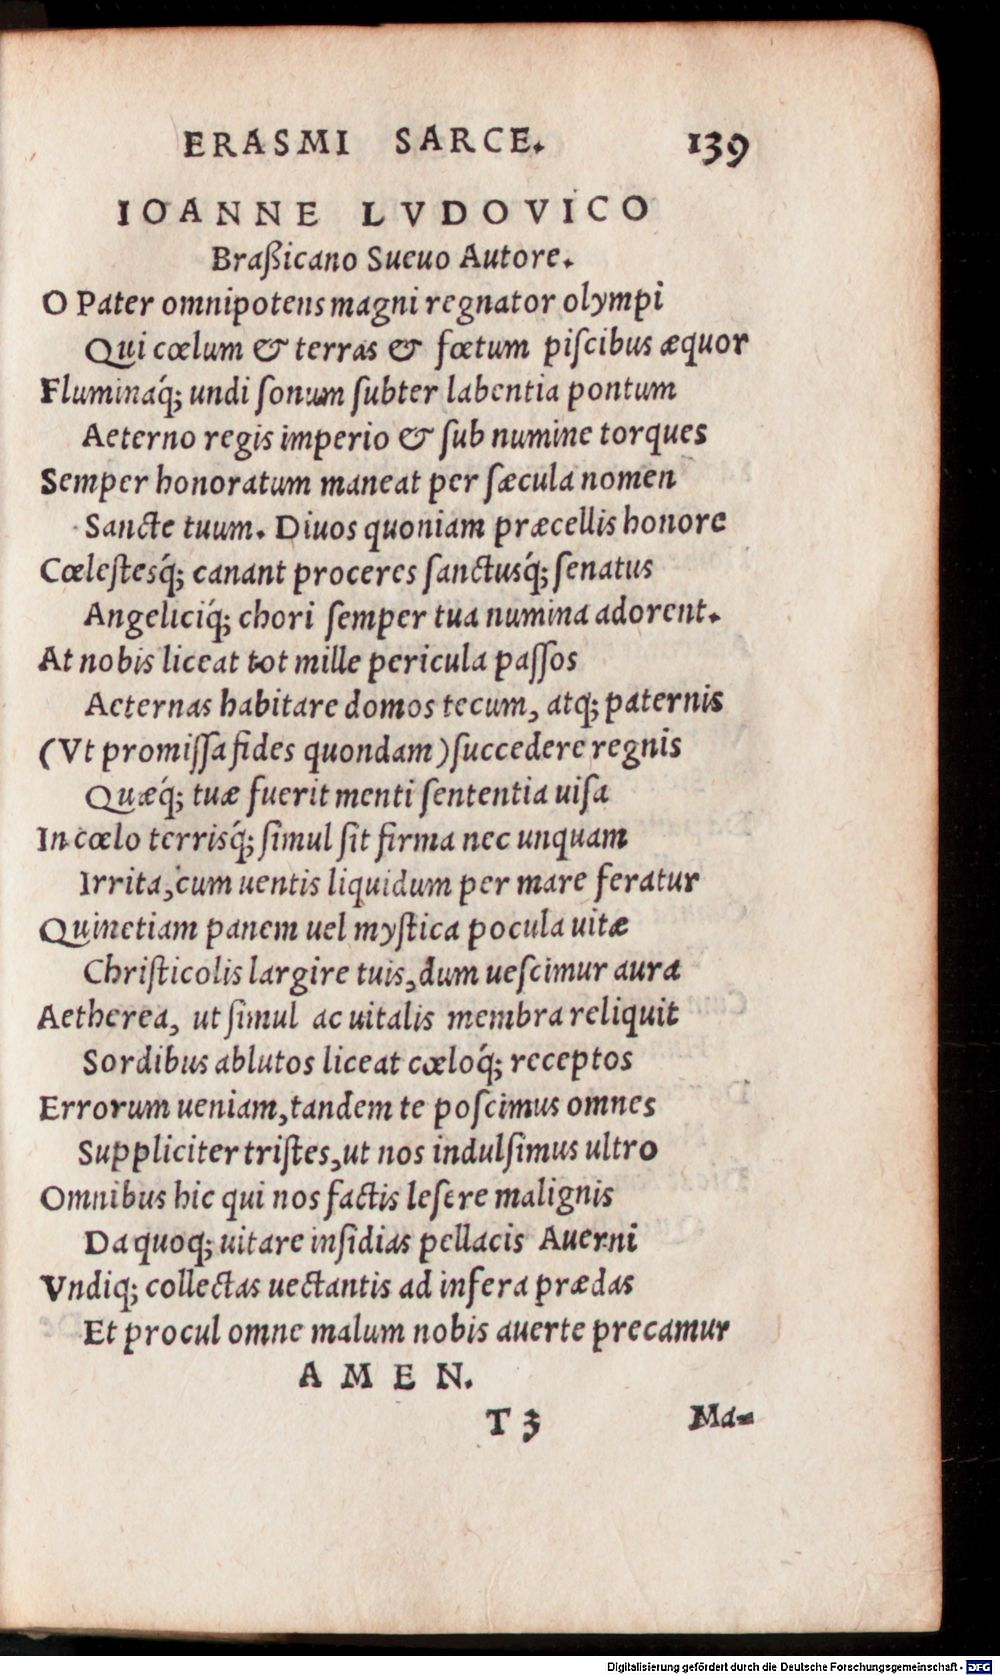 ERASMI SARCE. 139
IOANNE LVDOVICO
Braßicano Sueuo Autore.
O Pater omnipotens magni regnator olympi
Qui cœlum & terras & fœtum piſcibus æquor
Fluminaq́; undi ſonum ſubter labentia pontum
Aeterno regis imperio & ſub numine torques
Semper honoratum maneat per ſæcula nomen
Sancte tuum. Diuos quoniam præcellis honore
Cœleſtesq́; canant proceres ſanctusq́; ſenatus
Angeliciq́; chori ſemper tua numina adorent.
At nobis liceat tot mille pericula paſſos
Aeternas habitare domos tecum, atq; paternis
(Vt promiſſa fides quondam) ſuccedere regnis
Quæq́; tuæ fuerit menti ſententia uiſa
In cœlo terrisq́; ſimul ſit firma nec unquam
Irrita, cum uentis liquidum per mare feratur
Quinetiam panem uel myſtica pocula uitæ
Chriſticolis largire tuis, dum ueſcimur aura
Aetherea, ut ſimul ac uitalis membra reliquit
Sordibus ablutos liceat cœloq́; receptos
Errorum ueniam, tandem te poſcimus omnes
Suppliciter triſtes, ut nos indulſimus ultro
Omnibus hic qui nos factis leſere malignis
Da quoq; uitare inſidias pellacis Auerni
Vndiq; collectas uectantis ad infera prædas
Et procul omne malum nobis auerte precamur
AMEN.
T 3 Ma-
Digitalisierung gefördert durch die Deutsche Forschungsgemeinschaft - DFG